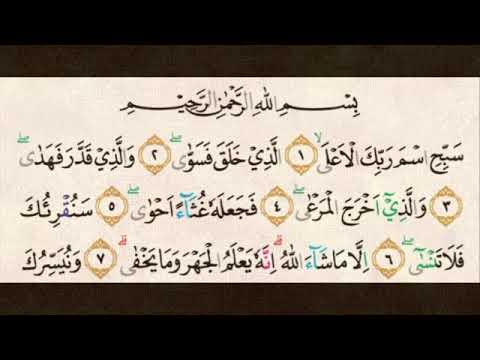 بِسْمِ اللهِ الرَّحْمٰنِ الرَّحِيْمِ
سَبِّحِ اسْمَ رَبِّكَ الْاَعْلَى ۙ ١ الَّذِيْ خَلَقَ فَسَوّٰى ۖ ٢ وَالَّذِيْ قَدَّرَ فَهَدٰى ۖ
٣ وَالَّذِيْٓ اَخْرَجَ الْمَرْعٰى ۖ ٤ فَجَعَلَهٗ غُثَاۤءً اَحْوٰى ۖ ٥ سَنُقْرِئُكَ
فَلَا تَنْسٰىٓ ۖ ٦ اِلَّا مَا شَاۤءَ اللّٰهُ ۗ اِنَّهٗ يَعْلَمُ الْجَهْرَ وَمَا يَخْفٰى ۗ ٧ وَنُيَسِّرُكَ